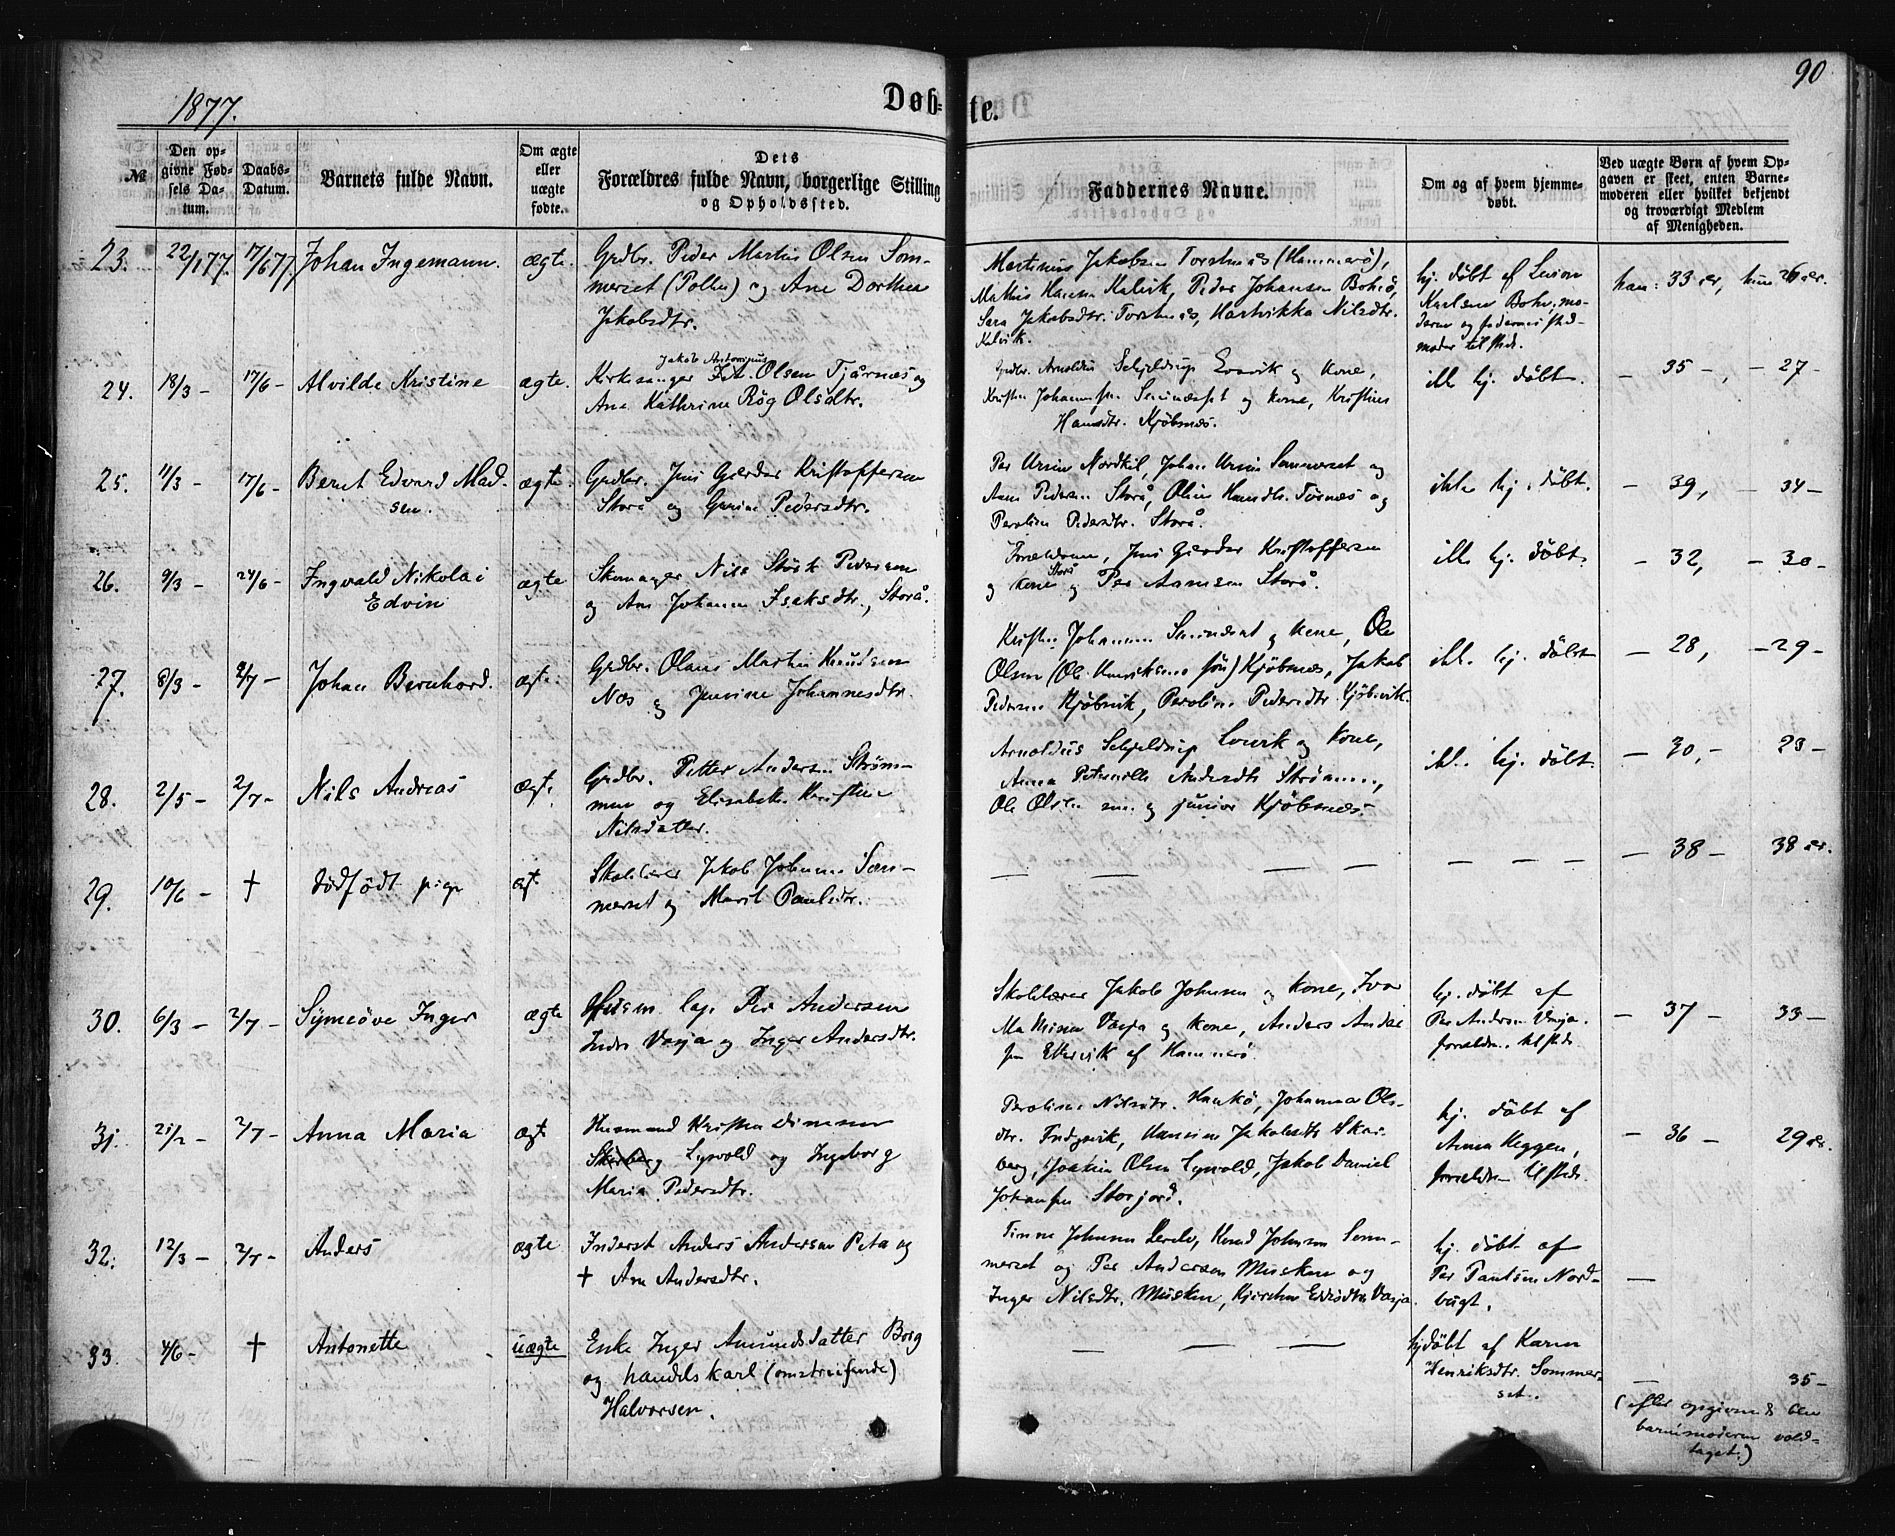 1877.
Døb=
te.
90
№
Den op-
givne Fød-
sels Da-
tum.
Daabs-
Datum.
Barnets fulde Navn.
Om ægte
eller
uægte
fødte.
Dets
Forældres fulde Navn, borgerlige Stilling
og Opholdssted.
Faddernes Navne.
Om og af hvem hjemme-
døbt.
Ved uægte Børn af hvem Op-
gaven er skeet, enten Barne-
moderen eller hvilket bekjendt
og troværdigt Medlem
af Menigheden.
23.
22/1 77.
17/6 77.
Johan Ingemann.
ægte.
Grdbr. Peder Martin Olsen Som-
merset (Pollen) og Ane Dorthea
Jakobsdtr.
Martinus Jakobsen Torstnæs (Hammerø),
Mathis Hansen Kalvik, Peder Johansen Bohø,
Sara Jakobsdtr. Torstnæs, Hartvikka Nilsdtr.
Kalvik.
hj. døbt af
Karlsen Bohø, mo-
deren og
moder tilstede.
han: 33 år, hun: 26 år.
24.
18/3 -
17/6 -
Alvilde Kristine
ægte.
Jakob Antonius
Kirkesanger Olsen Tjårnæs og
Ane Kathrine Røg Olsdtr.
Grdbr. Arnoldus Schjeldrup og kone,
Kristen Johannesen og kone, Kristine
Hansdtr. Kjøbnæs.
ikke hj. døbt.
- 35 -, - 27 -
25.
11/3 -
17/6 -
Bernt Edvard Mad-
sen.
ægte.
Grdbr. Jens Gjerdar Kristoffersen
Storå og Gurine Pedersdtr.
Per Ursin Nordkil, Johan Ursin Sommerset og
Pedersen Storå, Oline Hansdtr. Tørnæs og
Peroline Pedersdtr. Storå.
ikke hj. døbt.
- 39, - 34 -
26.
9/3 -
24/6 -
Ingvald Nikolai
Edvin
ægte
Skomager Nils Stock Pedersen
og Ane Johanna Isaksdtr., Storå.
Forældrene, Jens Gjerdar Kristoffersen
og kone Storå og Per Aamsen Storå.
ikke hj. døbt.
- 32, - 30 -
27.
8/3 -
2/7 -
Johan Bernhard.
ægte.
Grdbr. Olaus Martin Knudsen
Næs og Jensine Johannesdtr.
Kristen Johannesen og kone, Ole
Olsen (Ole Henriksens søn) Kjøbnæs, Jakob
Pedersen Kjøbvik, Peroline Pedersdtr. Kjøbvik.
ikke hj. døbt
- 28, - 29 -
28.
2/5 -
2/7 -
Nils Andreas
ægte
Grdbr. Petter Andersen Strøm-
men og Elisabeth Kristine
Nilsdatter.
Arnoldus Schjeldrup Lovik og kone,
Anna Petronelle Andersdtr Strømmen,
Ole Olsen sen. og junior Kjøbnæs.
ikke hj. døbt.
- 30, - 23 -
29.
10/6 -
†
dødfødt pige
ægte
Skolelærer Jakob Johnsen Som-
merset og Marit Paulsdtr.
— — — —
— — — —
- 38 - 38 år.
30.
6/3 -
2/7 -
Synnøve Inger
ægte
lap. Per Andersen
Indre Vasja og Inger Andersdtr.
Skolelærer Jakob Johnsen og kone, Ivar
Mathisen Vasja og kone, Anders Ander
sen Ettervik af Hammerø.
hj. døbt af
Per Andersen Vasja.
forældrene tilstede.
- 37 - 33 -
31.
21/2 -
2/7 -
Anna Maria
ægte
Husmand Kristen Simonsen
Skarberg Lysvold og Ingeborg
Maria Pedersdtr.
Peroline Nilsdtr. Haukø, Johanna Ols-
dtr. Indgavik, Hansine Jakobsdtr Skar-
berg, Joakim Olsen Lysvold, Jakob Daniel
Johansen Storjord.
hj. døbt af
Anna Heggen,
forældrene tilstede.
- 36 - 29 år.
32.
12/3 -
2/7 -
Anders
ægte
Inderst Anders Andersen Peta og
† Ane Andersdtr.
Johnsen, Knud Johnsen Som-
merset og Per Andersen Musken og
Inger Nilsdtr. Musken, Kjersten Vasja.
hj. døbt af
Per Paulsen Nord-
bugt.
—
33.
4/6 -
†
Antonette
uægte
Enke Inger Amundsdatter Borg
og handelskarl (omstreifende)
Halvorsen.
— — —
hjdøbt af Karen
Henriksdtr. Sommer-
set.
— 35 -
(efter opgivende blev
barnemoderen vold-
taget.)